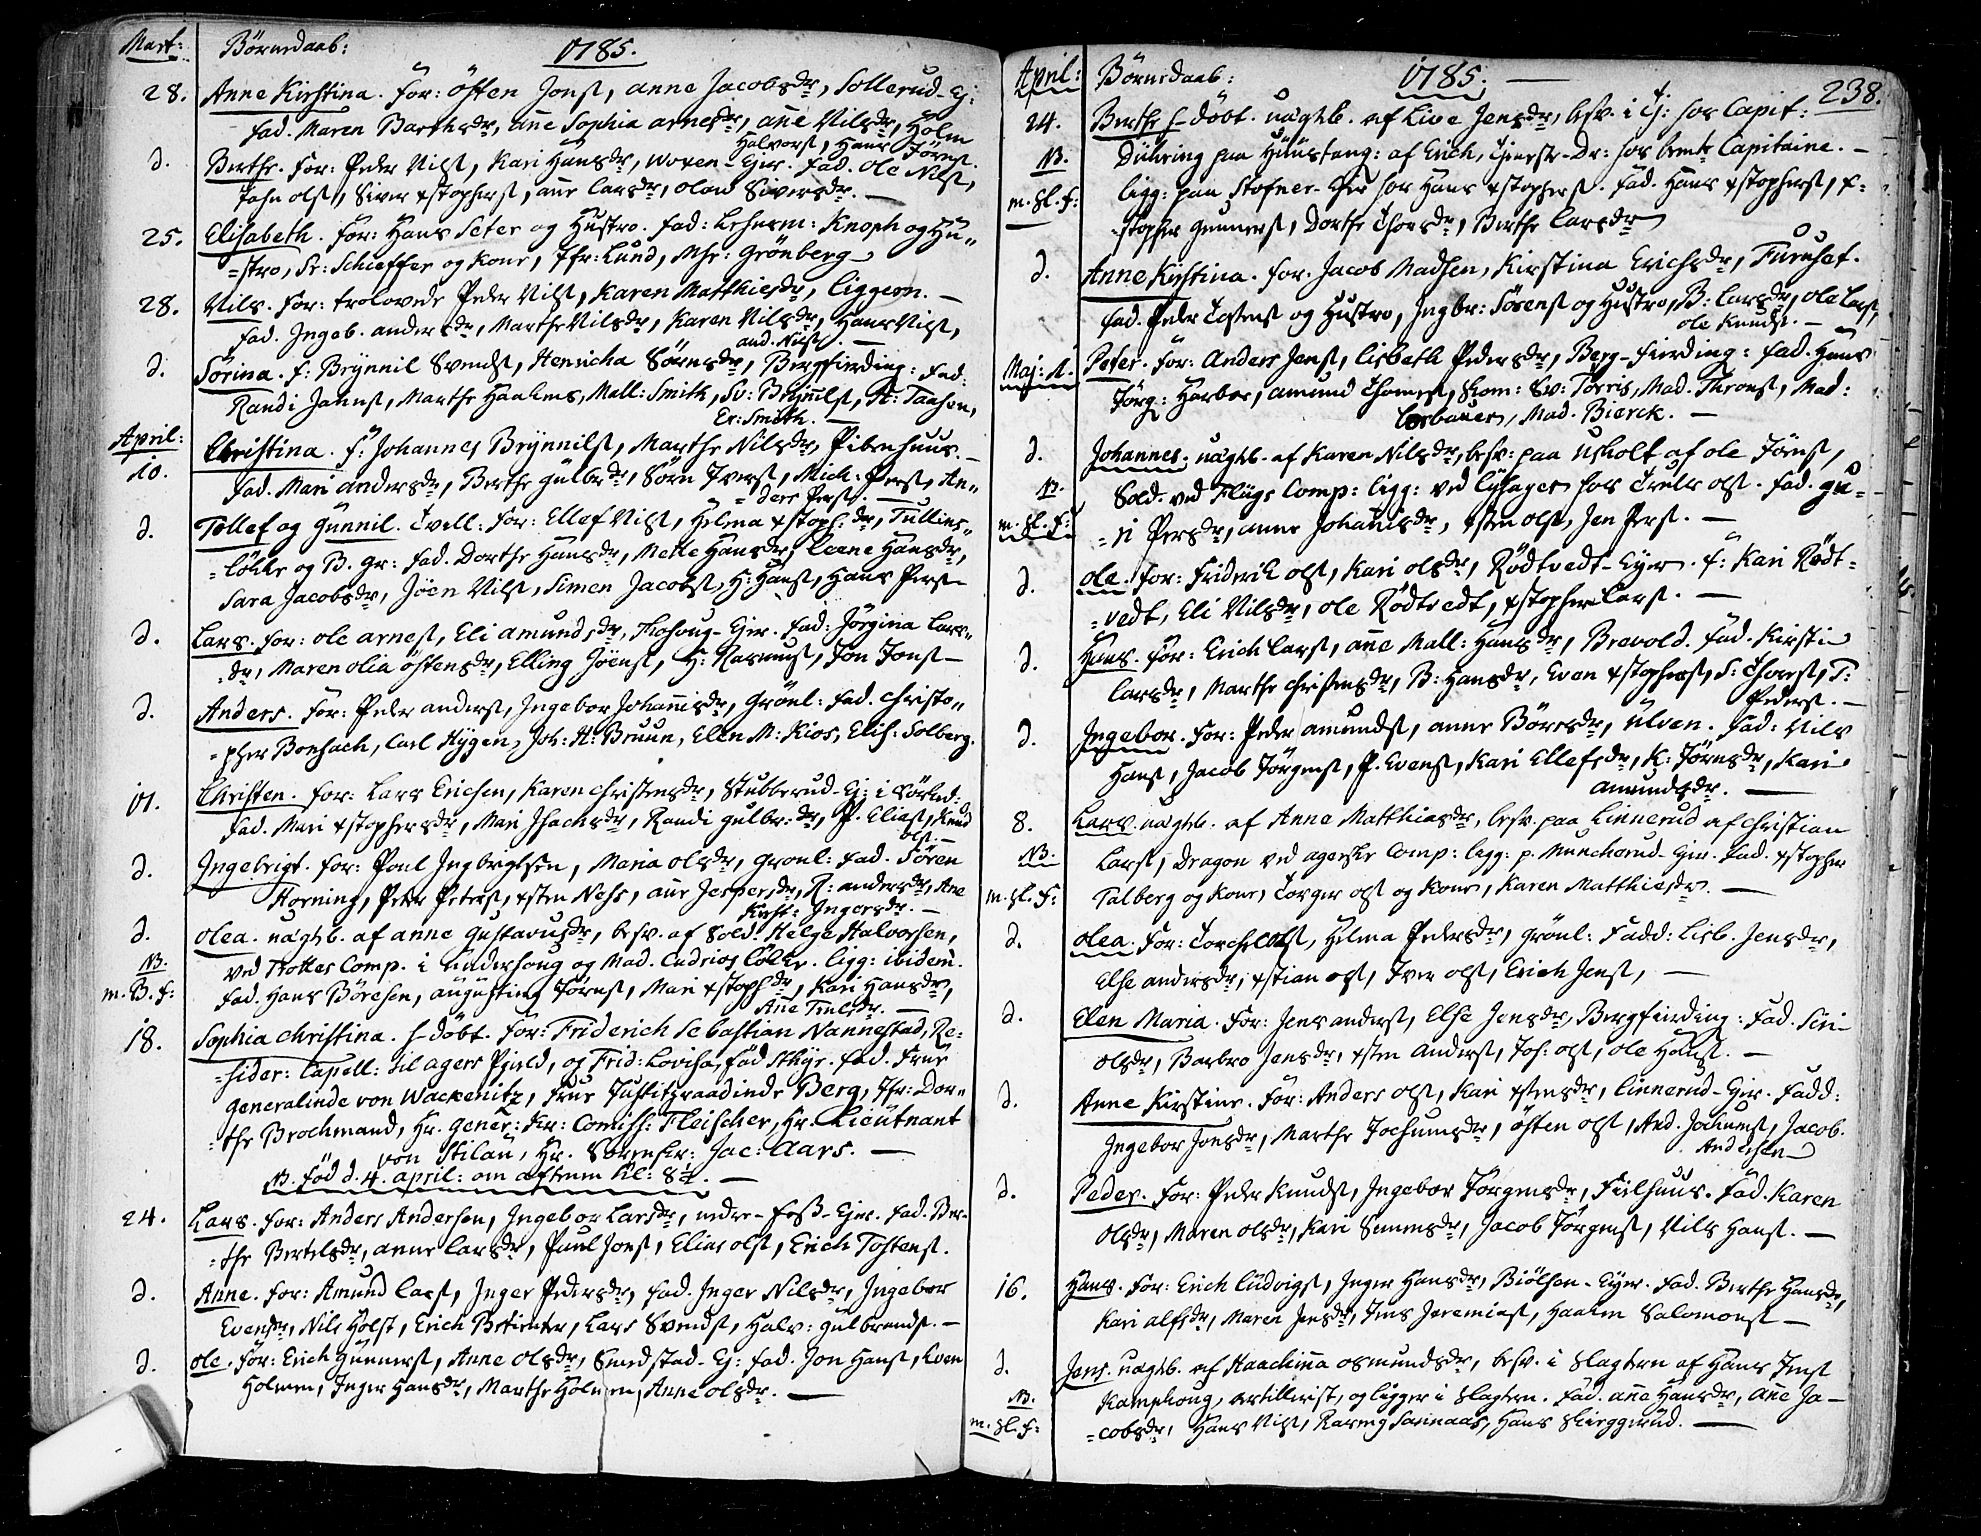 Mart: Börnedaab: 1785.
28. Anne Kirstina. For: Östen Jons, anne Jacobsdr, Sollerud-Ej:
fad. Maren Barthsdr, añe Sophia arnesdr, añe Nilsdr, Holm
Halvors, Hans Jörns.
d. Berthe. For: Peder Nils, Kari Hansdr, Woxen-Ejer. fad. Ole Nils,
John ols, Siver xstophers, añe Larsdr, olaw Siversdr. —
25. Elisabeth. For: Hans Seter og Hustro. fad: Lehnsm: Knoph og Hu„
„stro, Sr: Schieffer og Kone, Jfr: Lund, Msr: Grönberg
28. Nils. For: trolovede Peder Nils, Karen Matthiesdr, liggeon. —
fad. Ingeb. andersdr, Marthe Nilsdr, Karen Nilsdr, Hans Nils,
and. Nils. —
d. Sörina. F: Brynnil Svends, Henricha Sörnsdr, Bergfierding: fad:
Randi Janns, Marthe Haakens, Mall: Smith, Sv: Brynils, H: Taasen,
Er: Smith. —
April:
10. Christina. F: Johannes Brynnils, Marthe Nilsdr, Pibenhuus. —
fad. Mari andersdr, Berthe gulbrdr, Sörn Ivers, Mich: Pers, An„
„ders Pers. —
d. Tollef og Gunnil. Tvill: For: Ellef Nils, Helena xstoph: dr, Tullins„
„lökke og B. Gr: fad. Dorthe Hansdr, Mette Hansdr, Leene Hansdr,
Sara Jacobsdr, Jöen Nils, Simen Jacobs, H: Hans, Hans Pers —
d. Lars. For: ole arnes, Eli amundsdr, Ejer. fad: Jörgina Lars„
„dr, Maren olia Östensdr, Elling Jöens, H: Rasmus, Jon Jons —
d. Anders. For: Peder anders, Ingebor Johañisdr, Grönl: fad. Christo„
„pher Bonsach, Carl Hygen, Joh: H: Bruun, Elen M: Kios, Elis: Solberg.
17. Christen. For: Lars Erichsen, Karen Christensdr, Stubberud-Ej: i Sörked:
fad. Mari xstophersdr, Mari Isachsdr, Randi gulbr: dr, P. Elias, Knud
ols. —
d. Ingebrigt. For: Poul Ingbrgtsen, Maria olsdr, Gronl: fad. Sören
Horning, Peder Peters, xsten Ness, añe Jespersdr, R: andersdr, Ane
Kirst: Ingersdr. —
d. olea. uægtb. af anne Gustavusdr, besv. af Sold. Helge Halvorsen,
NB. ved Rottes Comp. i underhoug og Mad. lökke. ligg: ibidem.
m. B. F: fad. Hans Böresen, augustinus Jörns, Mari xstophdr, Kari Hansdr,
Añe Trulsdr. —
18. Sophia Christina. h-döbt. For: Friderich Sebastian Nannestad, Re„
„sider: Capell: til agers Pgield, og Frid: Lovisa, Föd Kthye. fad. Frue
Generalinde von Wackenitz, Frue Justitzraadinde Berg, Jfr: Dor„
„the Brochmand, Hr. Gener: Kr: Comiss: Fleischer, Hr. Lieutnant
von Stilau, Hr. Jac: Aars. —
NB. Föd d. 4. april: om aftnen Kl: 8½. —
24. Lars. For: Anders Andersen, Ingebor Larsdr, nedre-foss-Ejer. fad. Ber„
„the Bertelsdr, anne Larsdr, Paul Jons, Elias ols, Erich Tostens.
d. Anne. For: Amund Lars, Inger Pedersdr, fad. Inger Nilsdr, Ingebor
Evensdr, Nils Holst, Erich, Lars Svends, Halv: gulbrands. —
d. ole. For: Erich Gunners, Anne olsdr, Smedstad-Ej: fad. Jon Hans, Even
Holmen, Inger Hansdr, Marthe Holmen, Anne olsdr. —
April: Börnedaab: 1785. — 238.
24. Berthe h-döbt. uægtb. af Live Jensdr, besv. i Tj: hos Capit:
NB. Dühring paa Huustang: af Erich, Tjeneste-Dr: hos bemte Capitaine. —
m. Sl. F: ligg: paa Stofner-Ejer hos Hans xstophers. fad. Hans xstophers, x-
stopher Gunners, Dorthe Thorsdr, Berthe Larsdr
d. Anne Kirstina. For: Jacob Madsen, Kirstina Erichsdr, Furuset.
fad. Peder Tostens og Hustro, Ingbr: Sörens og Hustro, B: Larsdr, ole Lars,
ole Knuds. —
Maj: 1. Peter. For: Anders Jens, Lisbeth Pedersdr, Berg-fierding: fad. Hans
Jörg: Harboe, amund Thomes, Skom: Sv: Torris, Mad. Throns, Mad:
Losbauer, Mad. Bierck. —
d. Johannes. uægtb. af Karen Nilsdr, besv: paa Usholt af ole Jörns,
NB. Sold. ved Flügs Comp: ligg: ved hos Truls ols. fad. Gu„
m. Sl. F: „ri Persdr, anne Johañisdr, xsten ols, Jen Pers. —
d. ole. For: Friderik ols, Kari olsdr, Rödtvedt-Ejer. F: Kari Rödt„
„vedt, Eli Nilsdr, ole Rödtvedt, xstopher Lars. —
d. Hans. For: Erich Lars, añe Mall: Hansdr, Brevold. fad. Kirsti
Larsdr, Marthe Christensdr, B: Hansdr, Even xstophers, S: Thores, T:
Peders. —
d. Ingebor. For: Peder amunds, anne Böresdr, Ulven. fad: Nils
Hans, Jacob Jörgens, P. Evens, Kari Ellefsdr, K: Jörnsdr, Kari
amundsdr. —
8. Lars. uægtb. af Anne Matthiasdr, besv. paa Linnerud af Christian
NB. Lars, Dragon ved agerske Comp: ligg: p. Munkerud-Ejer. fad. xstopher
m. Sl. F: Talberg og Kone, Torger ols og Kone, Karen Matthiesdr. —
d. olea. For: Torchel ols, Helena Pedersdr, Grönl: fadd: Lisb. Jensdr,
Else andersdr, xstian ols, Iver ols, Erich Jens, —
d. Elen Maria. For: Jens anders, Else Jensdr, Bergfierding: fad. Siri
olsdr, Barbro Jensdr, xsten Anders, Joh: ols, ole Hans. —
d. Anne Kirstine. For: Anders ols, Kari xstensdr, Linnerud-Ejer. fadd:
Ingebor Jonsdr, Marthe Jochumsdr, Östen ols, And. Jochums, Jacob.
Andersen
d. Peder. For: Peder Knuds, Ingebor Jörgensdr, fad. Karen
olsdr, Maren olsdr, Kari Simensdr, Jacob Jörgens, Nils Hans. —
16. Hans. For: Erich Ludvigs, Inger Hansdr, Biölsen-Ejer. fad. Berthe Hansdr,
Kari alfsdr, Maren Jensdr, Jens Jeremias, Haaken Salomons —
d. Jens. uægtb. af Haachinna osmundsdr, besv. i Slagtern af Hans Jens
NB. Kamphoug, Artillerist, og ligger i Slagtern. fad. añe Hansdr, añe Ja„
m. Sl. F: „cobsdr, Hans Nils, Rasmus, Hans —